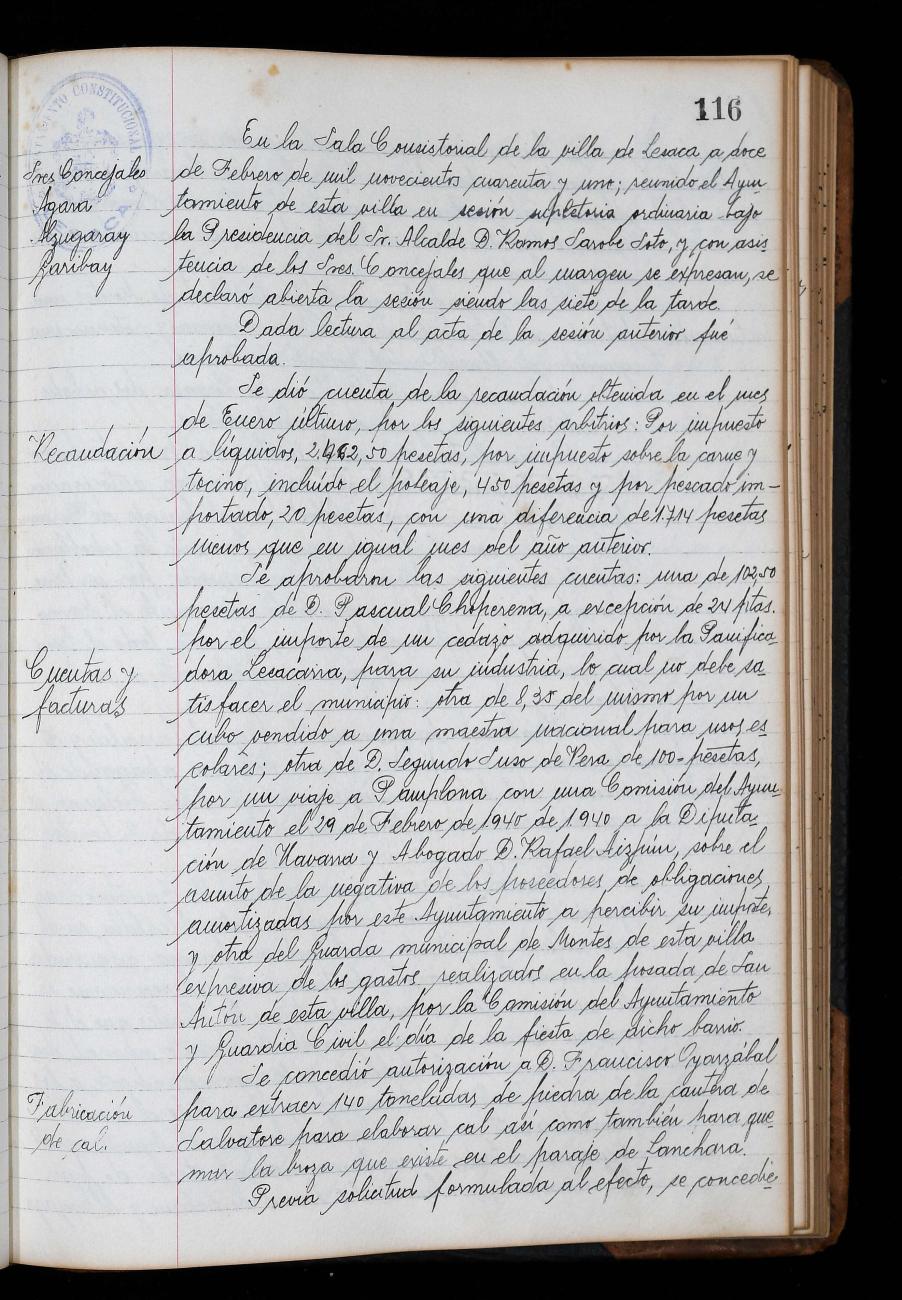 116
AYUNTAMIENTO CONSTITUCIONAL
En la Sala Consistorial de la villa de Lesaca a doce
de Febrero de mil novecientos cuarenta y uno; reunido el Ayun-
tamiento de esta villa en sesión supletoria ordinaria bajo
la Presidencia del Sr. Alcalde D. Ramos Sarobe Soto, y con asis-
tencia de los Sres. Concejales que al margen se expresan, se
declaró abierta la sesión siendo las siete de la tarde.
Sres Concejales
Agara
Alzugaray
Garibay
Dada lectura al acta de la sesión anterior fué
aprobada.
Se dió cuenta de la recaudación obtenida en el mes
de Enero último, por los siguientes arbitrios: Por impuesto
Recaudación
a líquidos, 2.962,50 pesetas, por impuesto sobre la carne y
tocino, incluido el poteaje, 450 pesetas y por pescado im-
portado, 20 pesetas, con una diferencia de 1.714 pesetas
menos que en igual mes del año anterior.
Se aprobaron las siguientes cuentas: una de 102,50
pesetas de D. Pascual Choperena, a excepción de 24 ptas.
por el importe de un cedazo adquirido por la Panifica-
Cuentas y
facturas
dora Lesacarra, para su industria, lo cual no debe sa-
tisfacer el municipio: otra de 8,35 del mismo por un
cubo vendido a una maestra nacional para usos es-
colares; otra de D. Segundo Suso de Vera de 100- pesetas,
por un viaje a Pamplona con una Comisión del Ayun-
tamiento el 29 de Febrero de 1940 de 1940 a la Diputa-
ción de Navarra y Abogado D. Rafael Aizpún, sobre el
asunto de la negativa de los poseedores de obligaciones
amortizadas por este Ayuntamiento a percibir su importe,
y otra del Guarda municipal de Montes de esta villa
expresiva de los gastos realizados en la posada de San
Antón de esta villa, por la Comisión del Ayuntamiento
y Guardia Civil el día de la fiesta de dicho barrio.
Se concedió autorización a D. Francisco Oyarzábal
Fabricación
de cal.
para extraer 140 toneladas de piedra de la cantera de
Salvatore para elaborar cal así como también para que-
mar la broza que existe en el paraje de Lanchara.
Previa solicitud formulada al efecto, se concedie-